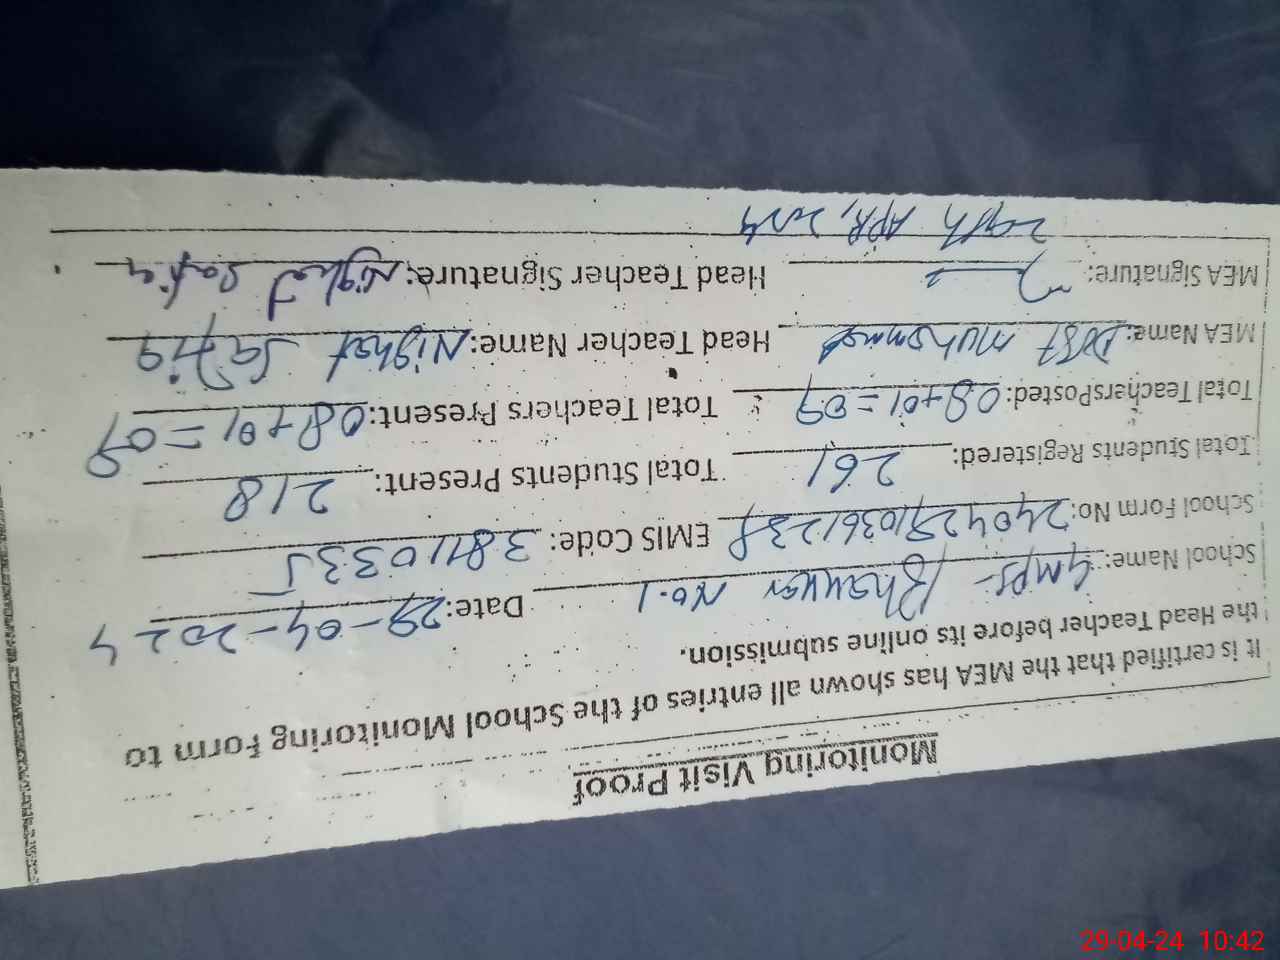 Monitoring Visit Proof
It is certified that the MEA has shown all entries of the School Monitoring Form to
the Head Teacher before its online submission.
School Name: GMPS- Bhawan No.1 Date: 29-04-2024
School Form No: EMIS Code: 38110335
Total Students Registered: 261 Total Students Present: 218
Total TeachersPosted: 08+01=09 Total Teachers Present: 08+01=09
MEA Name: Dost Muhammad Head Teacher Name: Nighat Safia
MEA Signature: Head Teacher Signature: Nighat Safia
29th APR, 2024
29-04-24 10:42